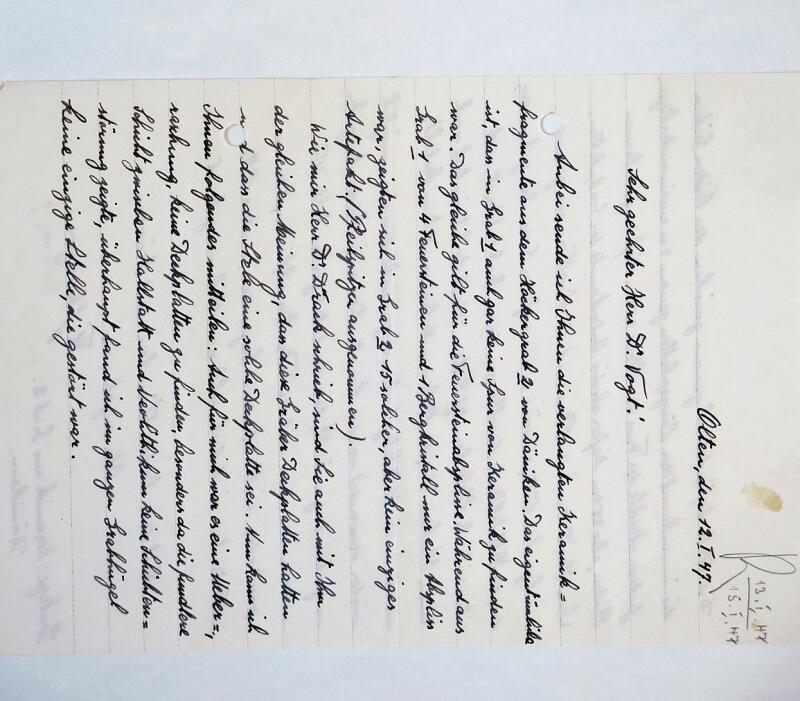 13. I. 47
R 15. I. 47
Olten, den 12. I. 47.
Sehr geehrter Herr Dr. Vogt!
Anbei sende ich Ihnen die verlangten Keramik=
fragmente aus dem Hockergrab 2 von Däniken. Das eigentümliche
ist, das in Grab 1 auch gar keine Spur von Keramik zu finden
war. Das gleiche gilt für die Feuersteinabsplisse. Während aus
Grab 1 von 4 Feuersteinen und 1 Bergkristall nur ein Abspliss
war, zeigten sich in Grab 2 15 solcher, aber kein einziges
Artefakt. (Pfeilspitze ausgenommen)
Wie mir Herr Dr. Drack schrieb, sind Sie auch mit Ihm
der gleichen Meinung, das diese Gräber Deckplatten hatten
und das die Stele eine solche Deckplatte sei. Nun kann ich
Ihnen folgendes mitteilen. Auch für mich war es eine Ueber=,
raschung, keine Deckplatten zu finden besonders da die fundleere
Schicht zwischen Hallstatt und Neolithikum keine Schichten=
störung zeigte, überhaupt fand ich im ganzen Grabhügel
keine einzige Stelle, die gestört war.